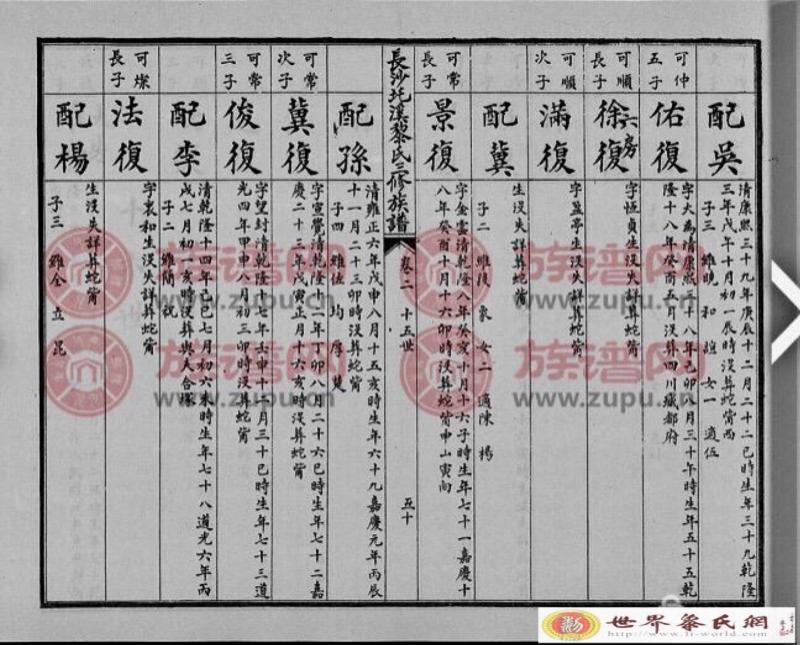 配吳
清康熙三十九年庚辰十二月二十二巳時生年三十九乾隆
三年戊午十月初一辰時沒葬蛇嘴西
子三 維曉 和 女一 適伍
可仲
五子
佑復
字大為清康熙三十八年己卯八月三十午時生年五十五乾
隆十八年癸酉五月沒葬四川 都府
可順
長子
徐復
六房
字恆貞生沒失詳葬蛇嘴
可順
次子
滿復
字盈亭生沒失詳葬蛇嘴
配冀
生沒失詳葬蛇嘴
子二 維 象 女二 適陳 楊
可常
長子
景復
字金雲清乾隆八年癸亥十月十六子時生年七十一嘉慶十
八年癸酉十月十六卯時沒葬蛇嘴申山寅向
長沙圫溪黎氏三修族譜
卷二 十五世
五十
配孫
清雍正六年戊申八月十五亥時生年六十九嘉慶元年丙辰
十一月二十三卯時沒葬蛇嘴
子四 維伍 均 厚
可常
次子
冀復
字宣覺清乾隆十二年丁卯八月二十六巳時生年七十二嘉
慶二十三年戊寅正月十六亥時沒葬蛇嘴
可常
三子
俊復
字望封清乾隆十七年壬申十二月三十巳時生年七十三道
光四年甲申八月初三卯時沒葬蛇嘴
配李
清乾隆十四年己巳七月初六未時生年七十八道光六年丙
戌七月初一亥時沒葬與夫合塚
子二 維簡 祝
可燦
長子
法復
字衷和生沒失詳葬蛇嘴
配楊
生沒失詳葬蛇嘴
子三 維全 立 昆
族谱网
www.zupu.cn
族谱网
www.zupu.cn
族谱网
www.zupu.cn
族谱网
www.zupu.cn
世界黎氏網
http://www.li-world.com